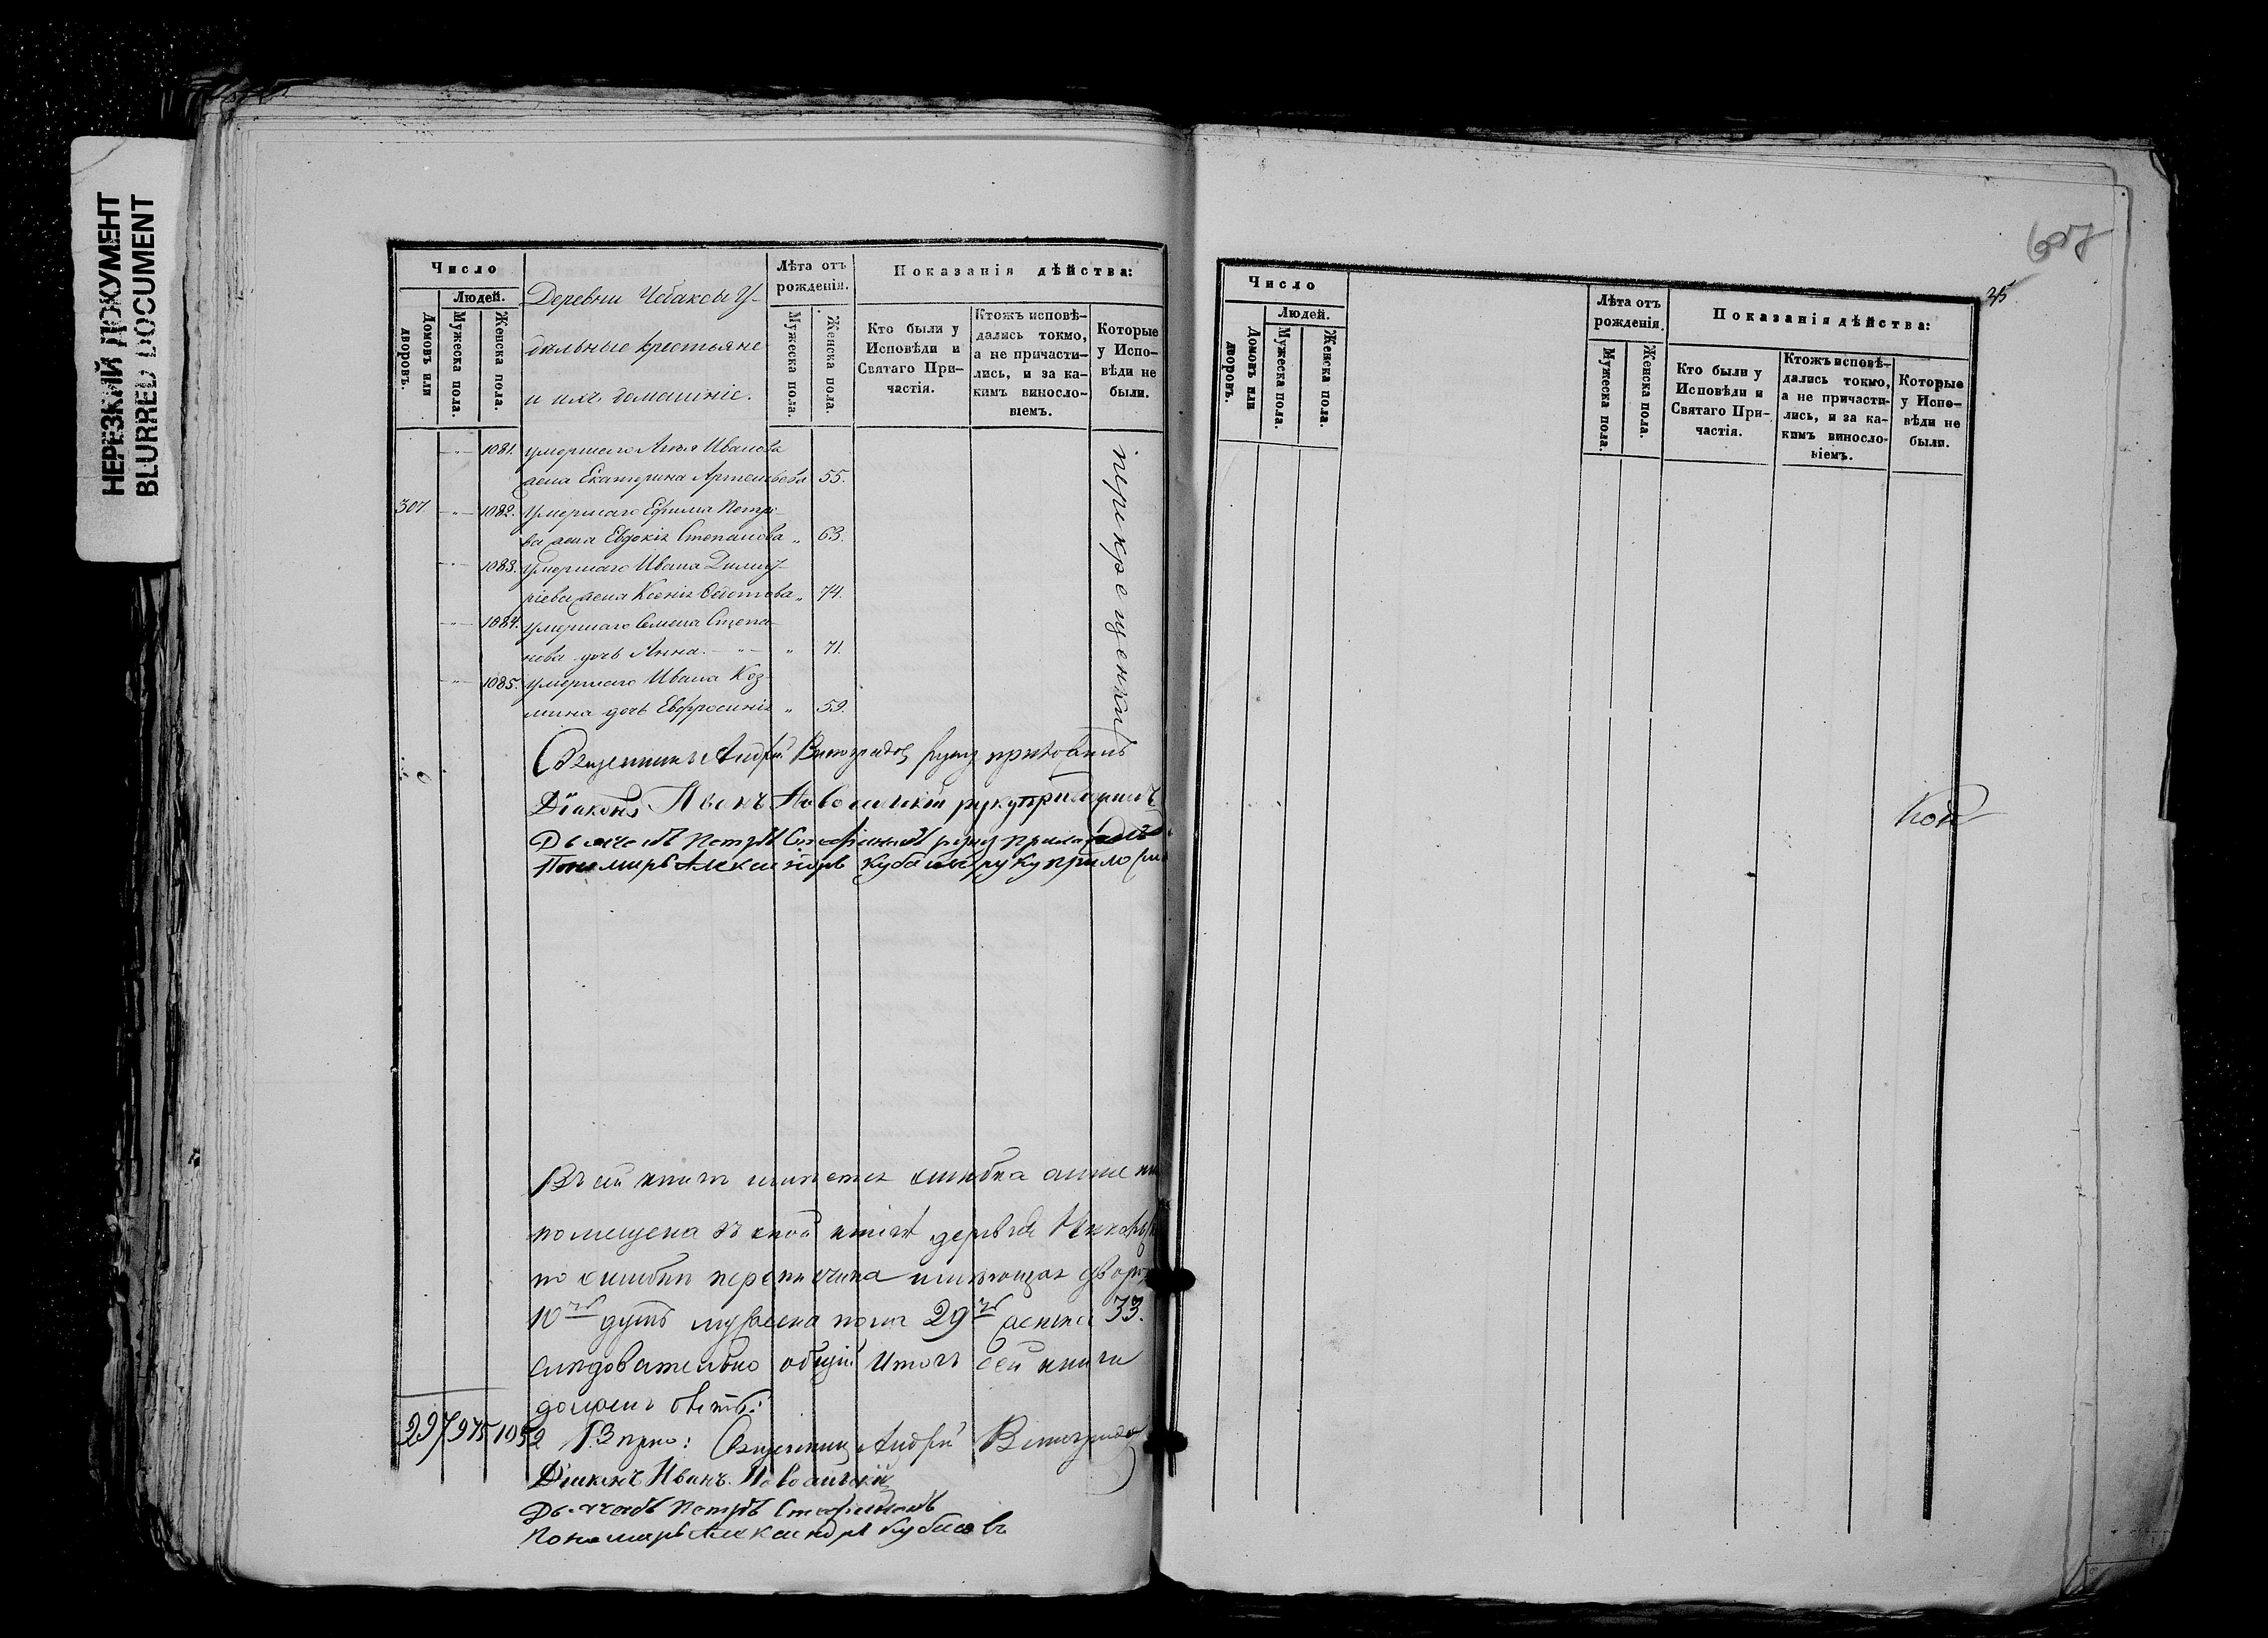 НЕРЕЗКИЙ ДОКУМЕНТ
BLURRED DOCUMENT
Число
Людей.
Домовъ или дворовъ.
Мужеска пола.
Женска пола.
Деревни Чебаковы У-
дѣльные крестьяне
и ихъ домашніе.
Лѣта отъ рожденія.
Мужеска пола.
Женска пола.
Показанія дѣйства:
Кто были у Исповѣди и Святаго Причастія.
Ктожъ исповѣдались токмо, а не причастились, и за какимъ винословіемъ.
Которые у Исповѣди не были.
1081. умершаго Ивanова
жена Екатерина 55.
307 1082. Умершаго Ефима Петро-
ва жена Евдокія Степанова " 63.
1083. Умершаго Ивана Димит-
ріева жена Ксенія " 74.
1084. Умершаго Семена Степа-
нова дочь Анна. " 71.
1085. Умершаго Ивана Коз-
мина дочь Евфросинія " 59.
Священникъ Андрей Виноградовъ руку приложилъ
Діаконъ Иванъ руку приложилъ
Дьячекъ Петръ руку приложилъ
Пономарь Александръ руку
въ сей книгѣ имѣется ошибка
помещена въ книгѣ деревня
по ошибки переписчика имѣющая
10 душъ мужеска пола 29 женска 33.
слѣдовательно общій итогъ сей книги
долженъ быть:
297 975 1052 Священникъ Андрей Виноградовъ
Діаконъ Иванъ
Дьячекъ Петръ
Пономарь Александръ
607
35
Число
Людей.
Домовъ или дворовъ.
Мужеска пола.
Женска пола.
Лѣта отъ рожденія.
Мужеска пола.
Женска пола.
Показанія дѣйства:
Кто были у Исповѣди и Святаго Причастія.
Ктожъ исповѣдались токмо, а не причастились, и за какимъ винословіемъ.
Которые у Исповѣди не были.